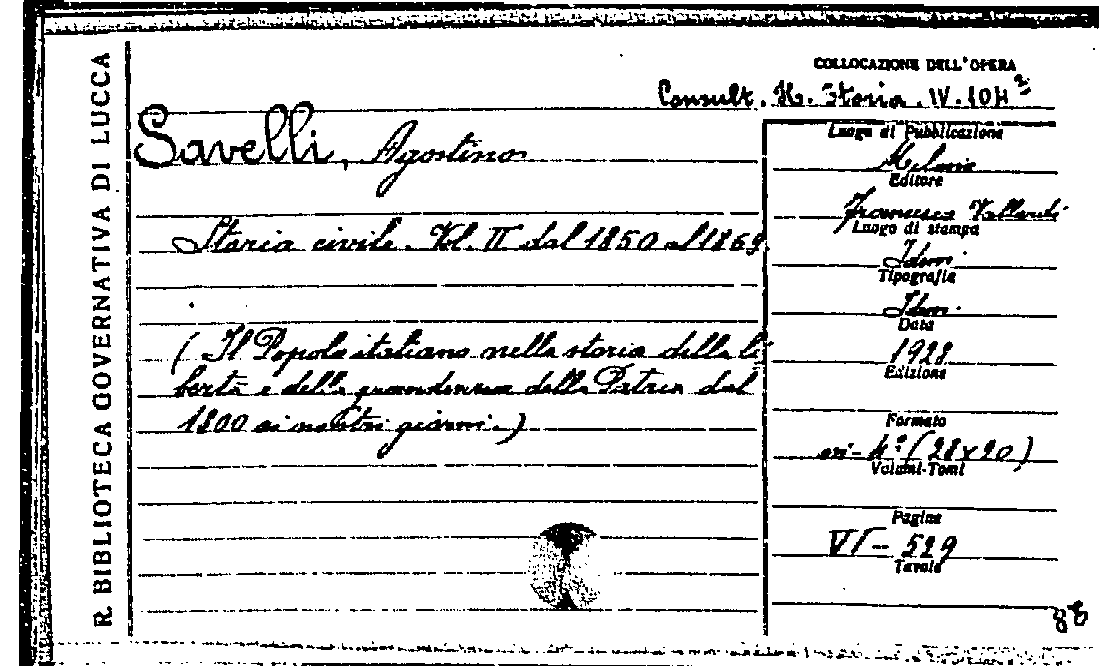 R. BIBLIOTECA GOVERNATIVA DI LUCCA
COLLOCAZIONE DELL'OPERA
Consult. H. Storia. IV. 104
Savelli, Agostino
Storia civile. Vol. II dal 1850 al 1869.
(Il Popolo italiano nella storia della li-
bertà e della grandezza della Patria dal
1800 ai nostri giorni.)
Luogo di Pubblicazione
Milano
Editore
Francesco Vallardi
Luogo di stampa
Idem
Tipografia
Idem
Data
1928
Edizione
Formato
in-4º (28x20)
Volumi-Tomi
Pagine
VI - 529
Tavole